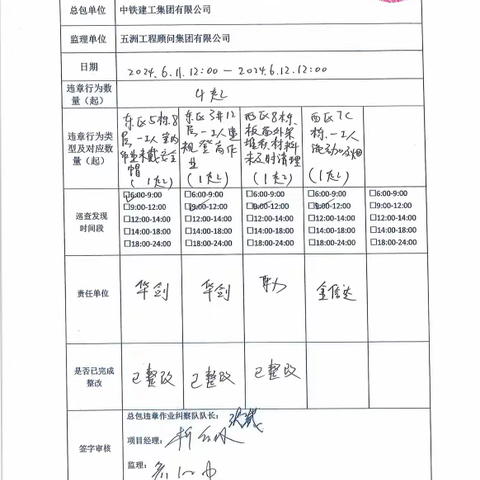 总包单位 中铁建工集团有限公司
监理单位 五洲工程顾问集团有限公司
日期 2024.6.11.12:00 — 2024.6.12.12:00
违章行为数量（起） 4起
违章行为类型及对应数量（起）
东区5栋8层,一工人室内作业未戴安全帽（1起）
东区3#12层,一工人违规登高作业（1起）
西区8栋,板面外架堆积材料未及时清理（1起）
西区7C栋,一工人流动吸烟（1起）
巡查发现时间段
☐6:00-9:00 ☐6:00-9:00 ☐6:00-9:00 ☐6:00-9:00
☐9:00-12:00 ☐9:00-12:00 ☐9:00-12:00 ☐9:00-12:00
☐12:00-14:00 ☐12:00-14:00 ☐12:00-14:00 ☐12:00-14:00
☐14:00-18:00 ☐14:00-18:00 ☐14:00-18:00 ☐14:00-18:00
☐18:00-24:00 ☐18:00-24:00 ☐18:00-24:00 ☐18:00-24:00
责任单位 华剑 华剑 金信达
是否已完成整改 已整改 已整改 已整改
签字审核
总包违章作业纠察队队长:
项目经理:
监理: